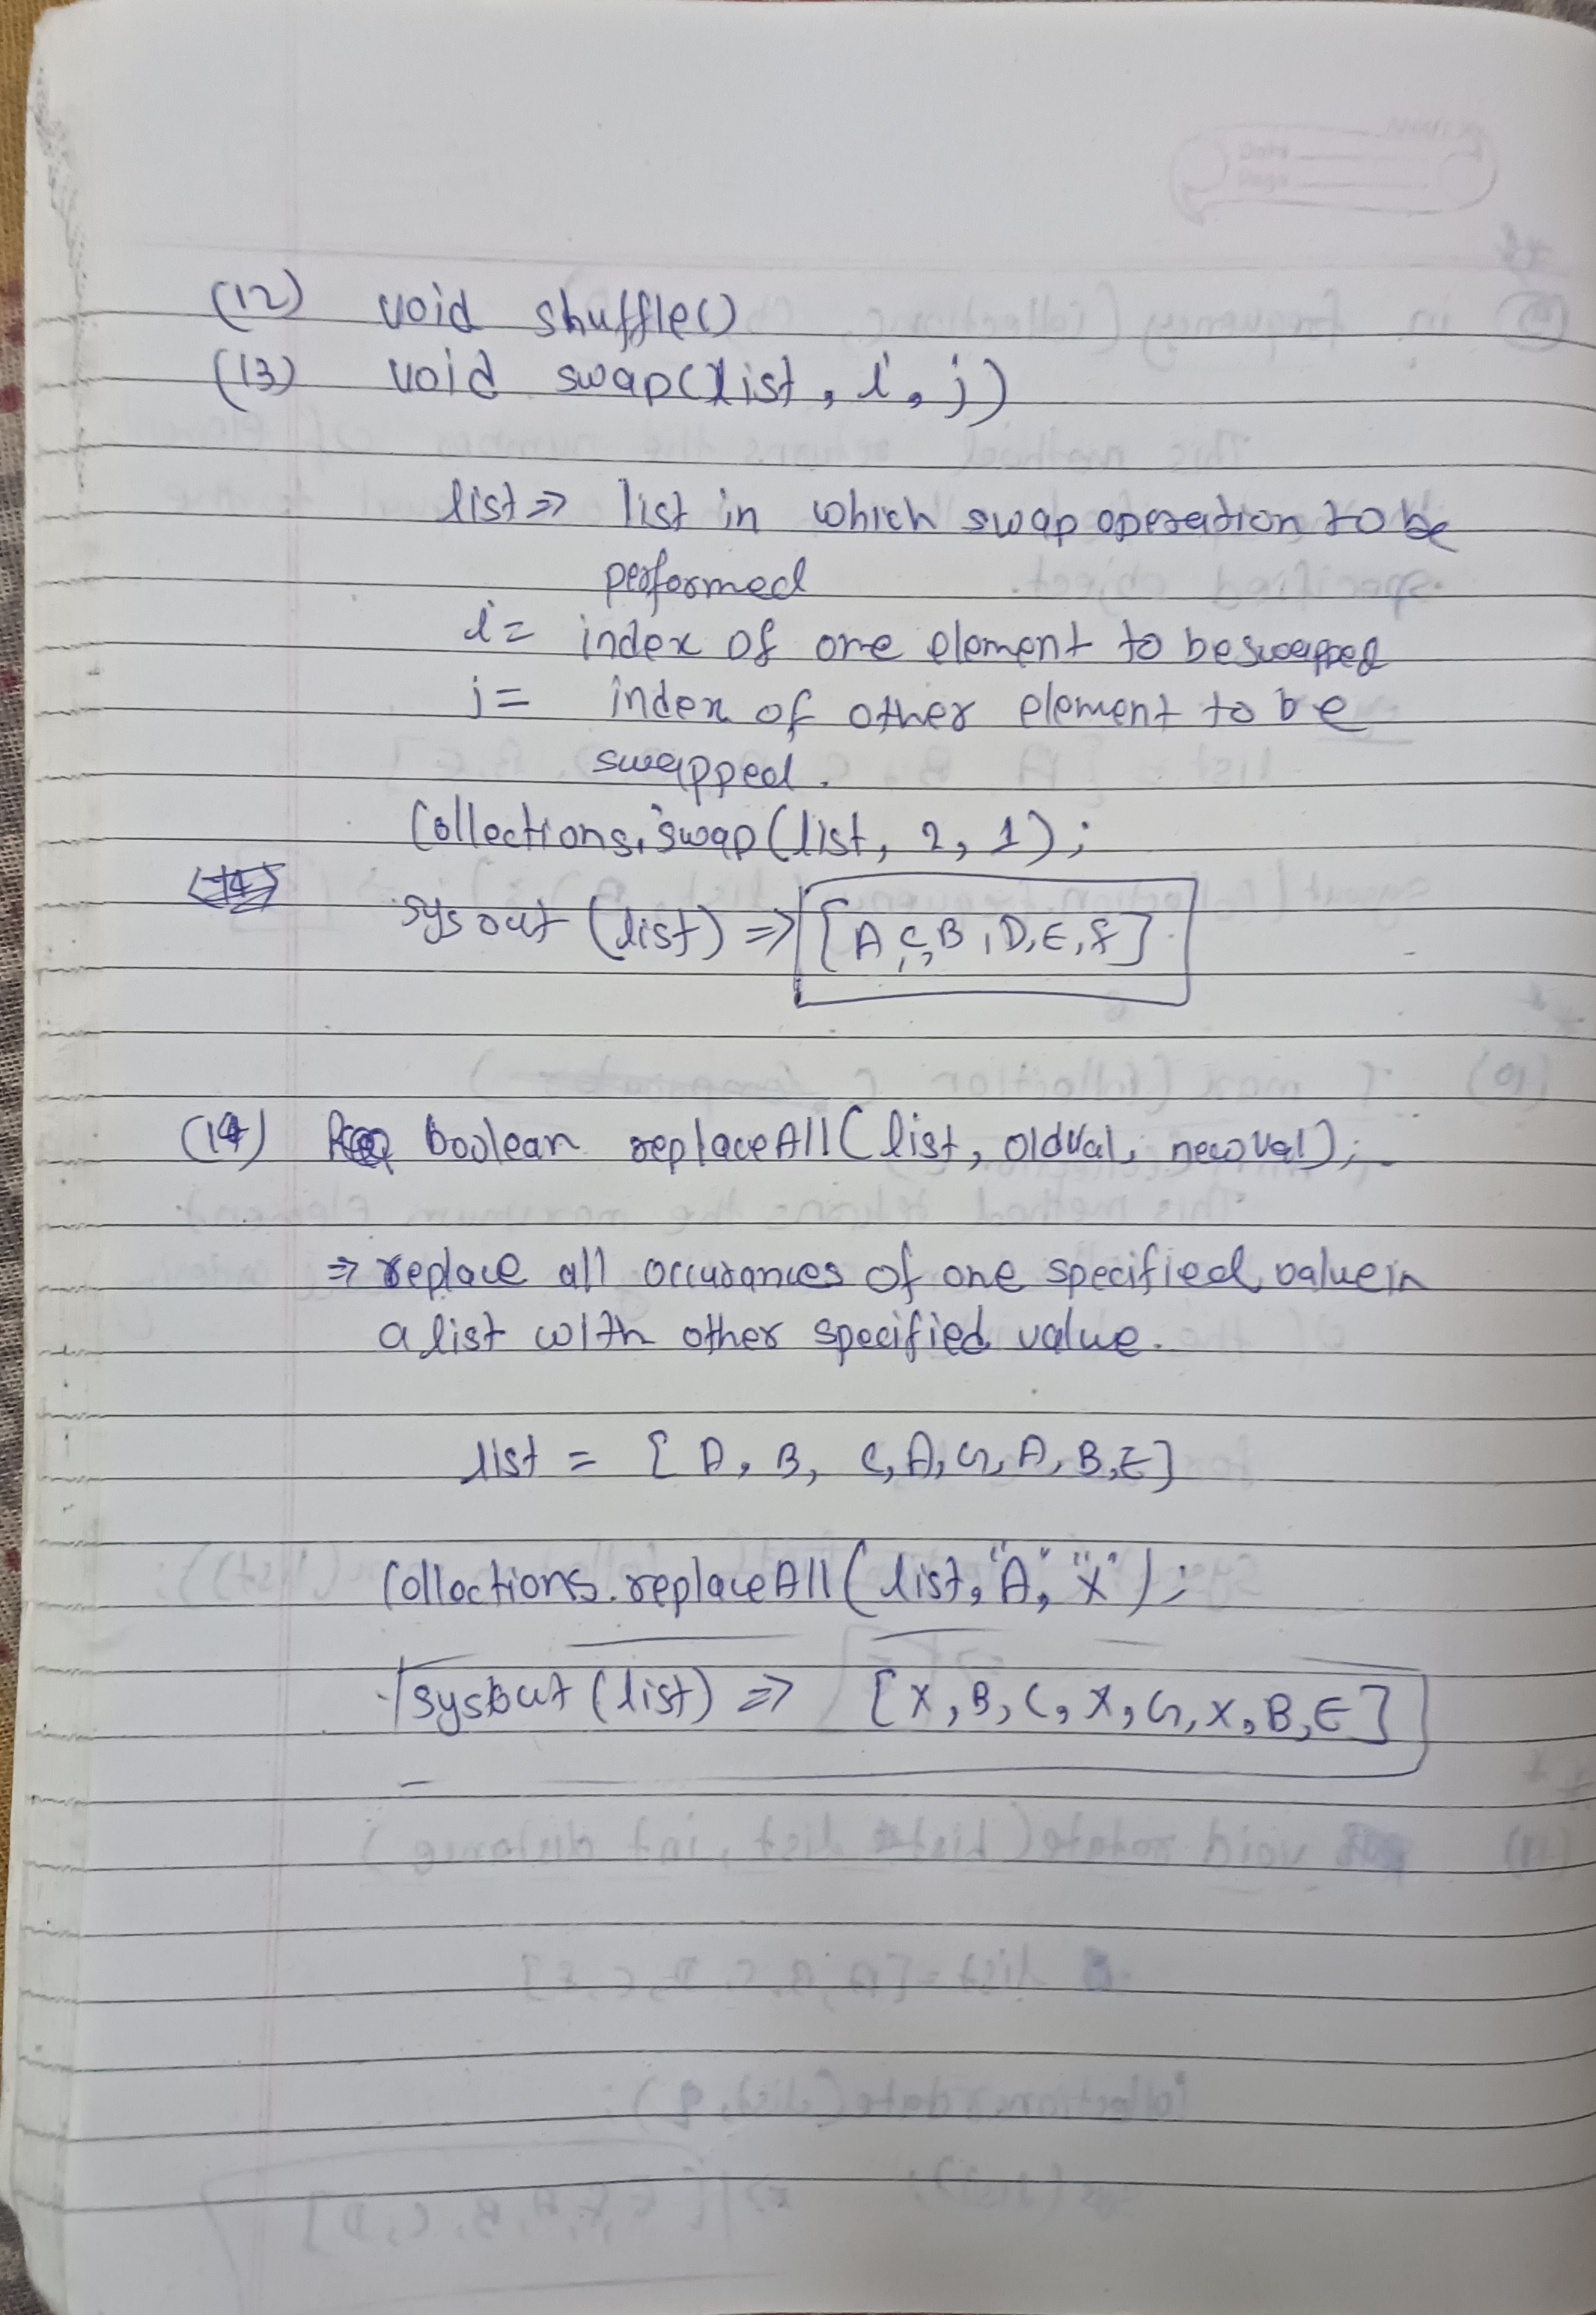 (12) void shuffle()
(13) void swap(list, i, j)
list => list in which swap operation to be
performed
i = index of one element to be swapped
j = index of other element to be
swapped.
Collections.swap(list, 2, 1);
sysout (list) => [A, C, B, D, E, F]
(14) boolean replaceAll(list, oldVal, newVal);
=> replace all occurances of one specified value in
a list with other specified value.
list = [A, B, C, A, G, A, B, E]
Collections.replaceAll(list, "A", "X");
sysout (list) => [X, B, C, X, G, X, B, E]